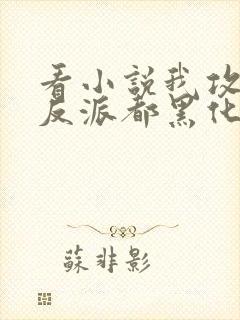 看小說我攻
反派都黑化
蘇非影